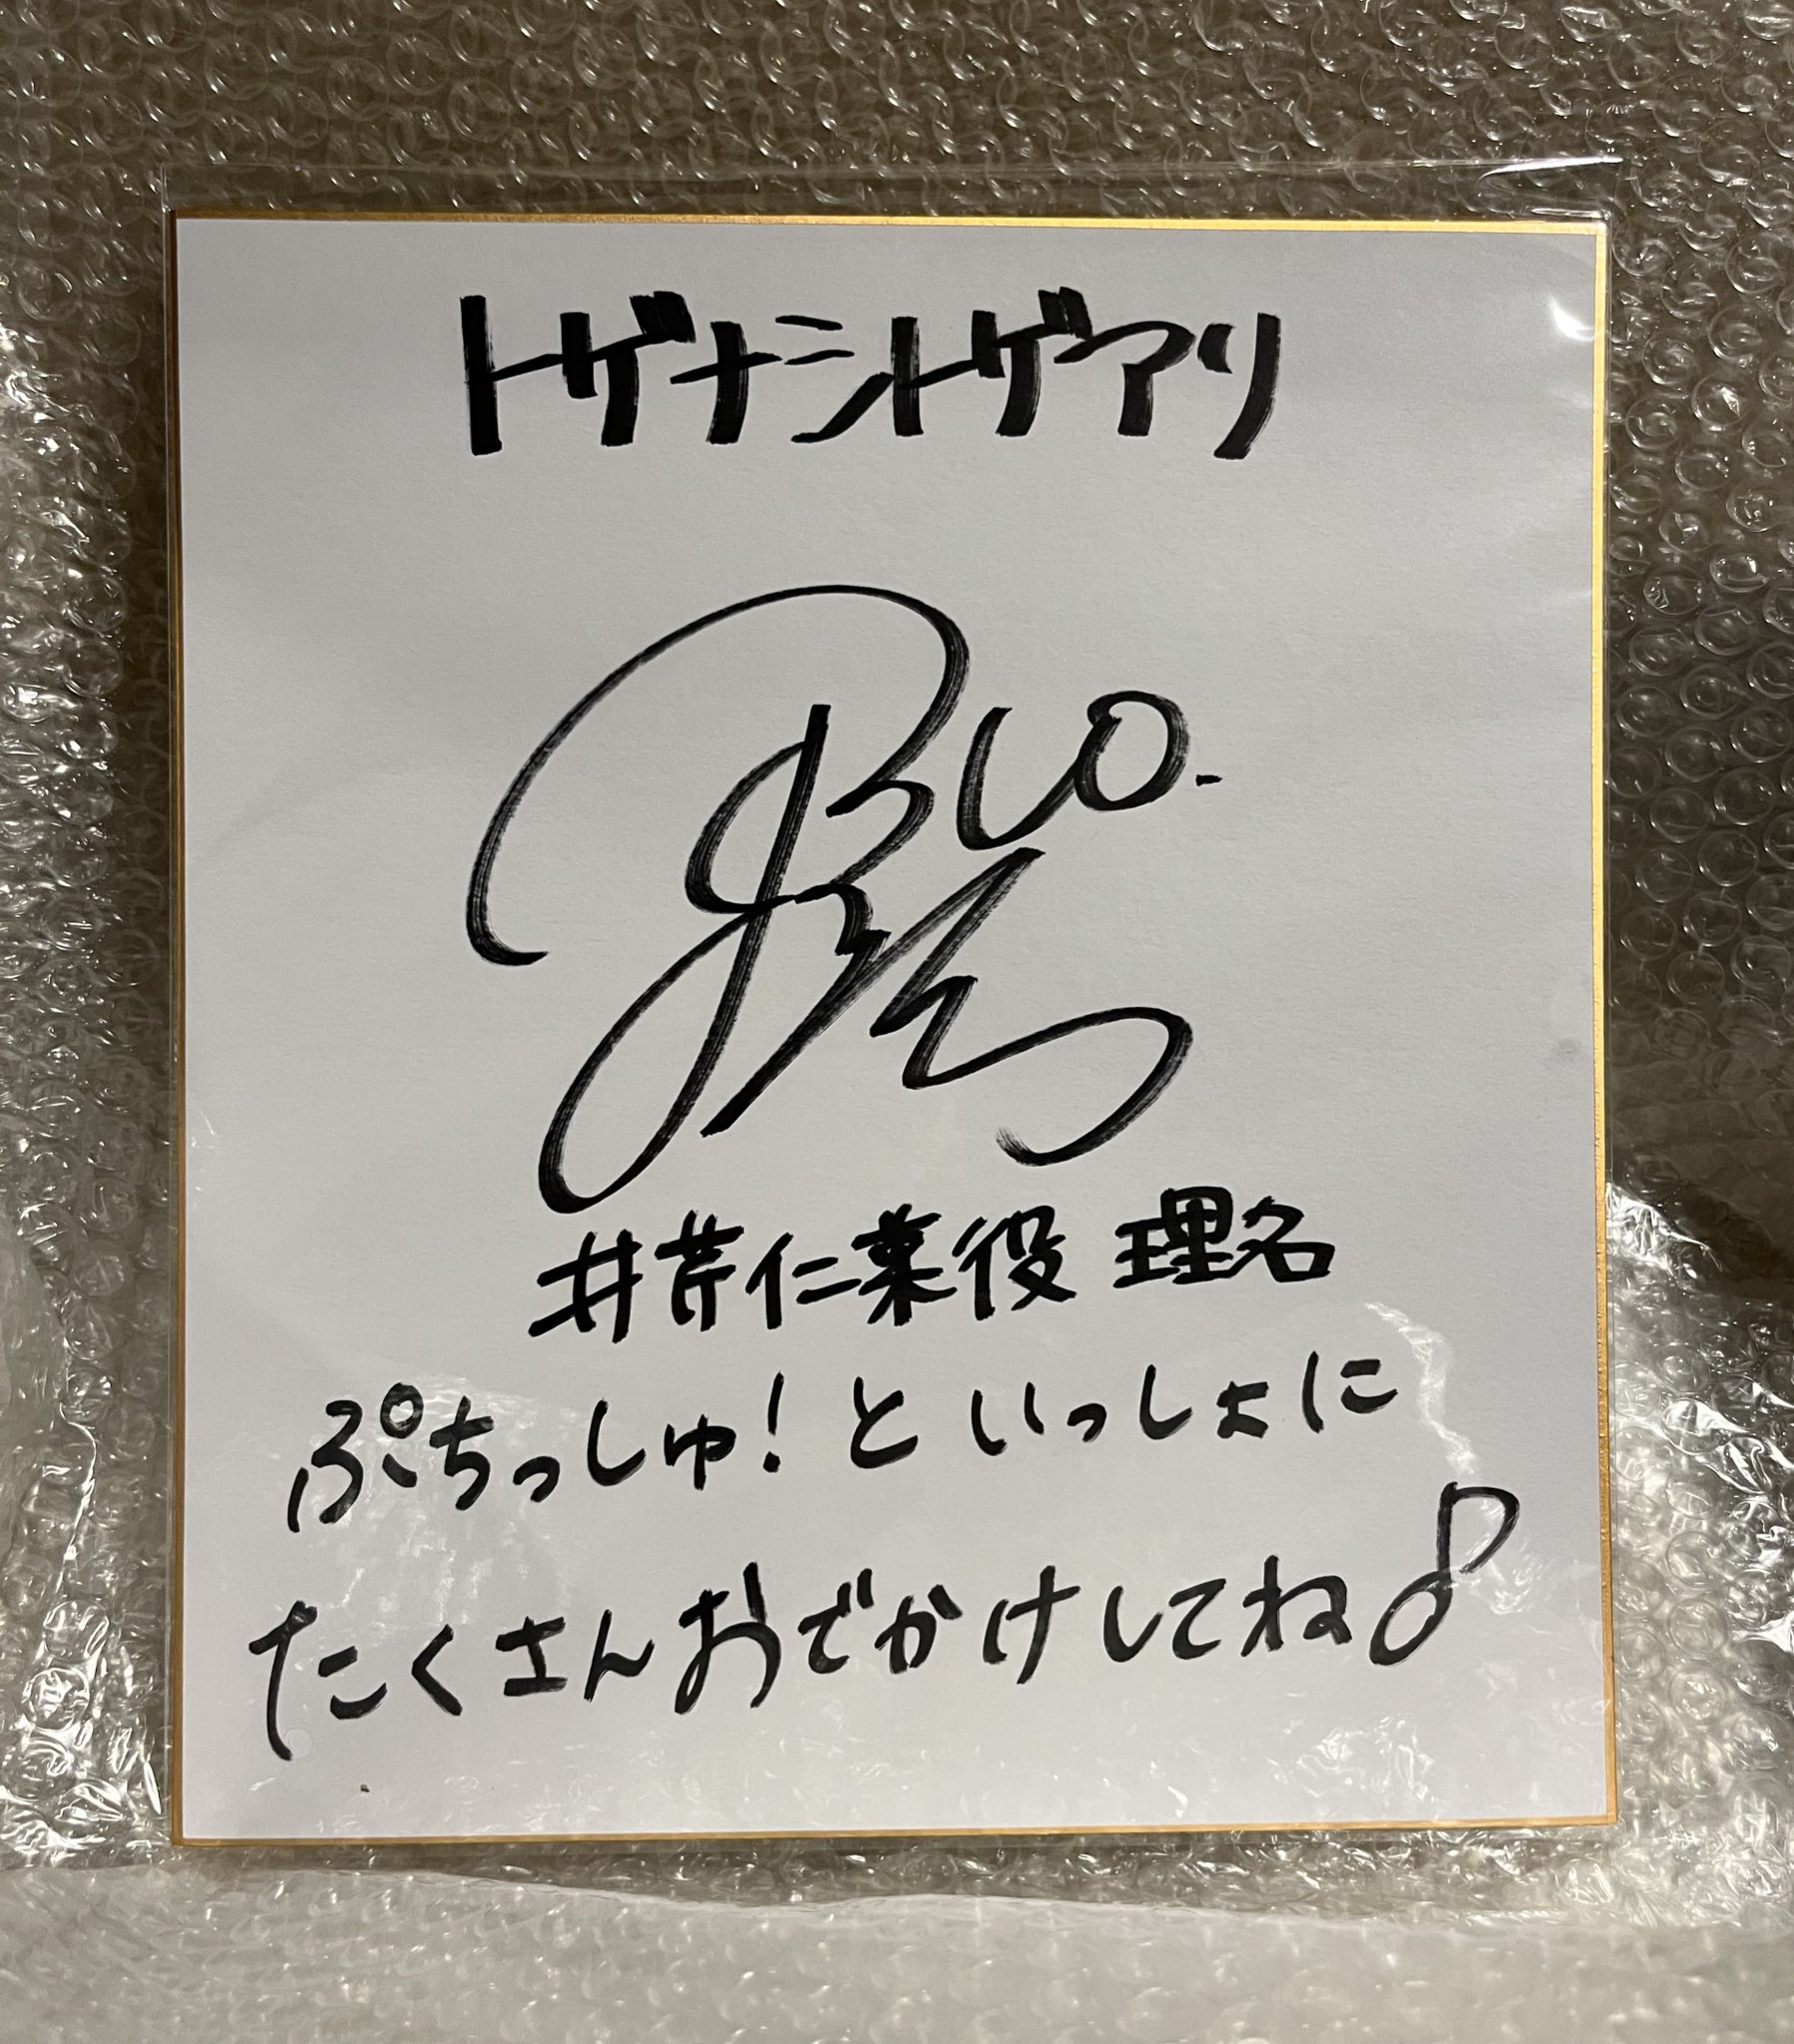 トゲナシトゲアリ
井芹仁菜役 理名
ぷちっしゅ！といっしょに
たくさんおでかけしてね♪